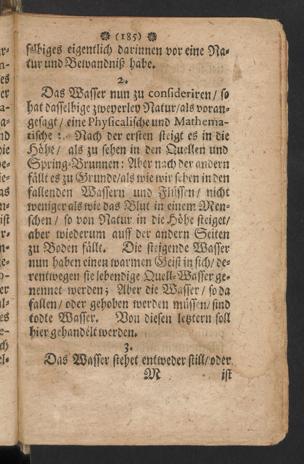 (185)
selbiges eigentlich darinnen vor eine Na-
tur und Bewandniß habe.
2.
Das Wasser nun zu consideriren / so
hat dasselbige zweyerley Natur / als voran-
gesagt / eine Physicalische und Mathema-
tische :. Nach der ersten steigt es in die
Höhe / als zu sehen in den Quellen und
Spring-Brunnen: Aber nach der andern
fällt es zu Grunde / als wie wir sehen in den
fallenden Wassern und Flüssen / nicht
weniger als wie das Blut in einem Men-
schen / so von Natur in die Höhe steiget /
aber wiederum auff der andern Seiten
zu Boden fällt. Die steigende Wasser
nun haben einen warmen Geist in sich / de-
rentwegen sie lebendige Quell-Wasser ge-
nennet werden; Aber die Wasser / so da
fallen / oder gehoben werden müssen / sind
todte Wasser. Von diesen letztern soll
hier gehandelt werden.
3.
Das Wasser stehet entweder still / oder
M ist